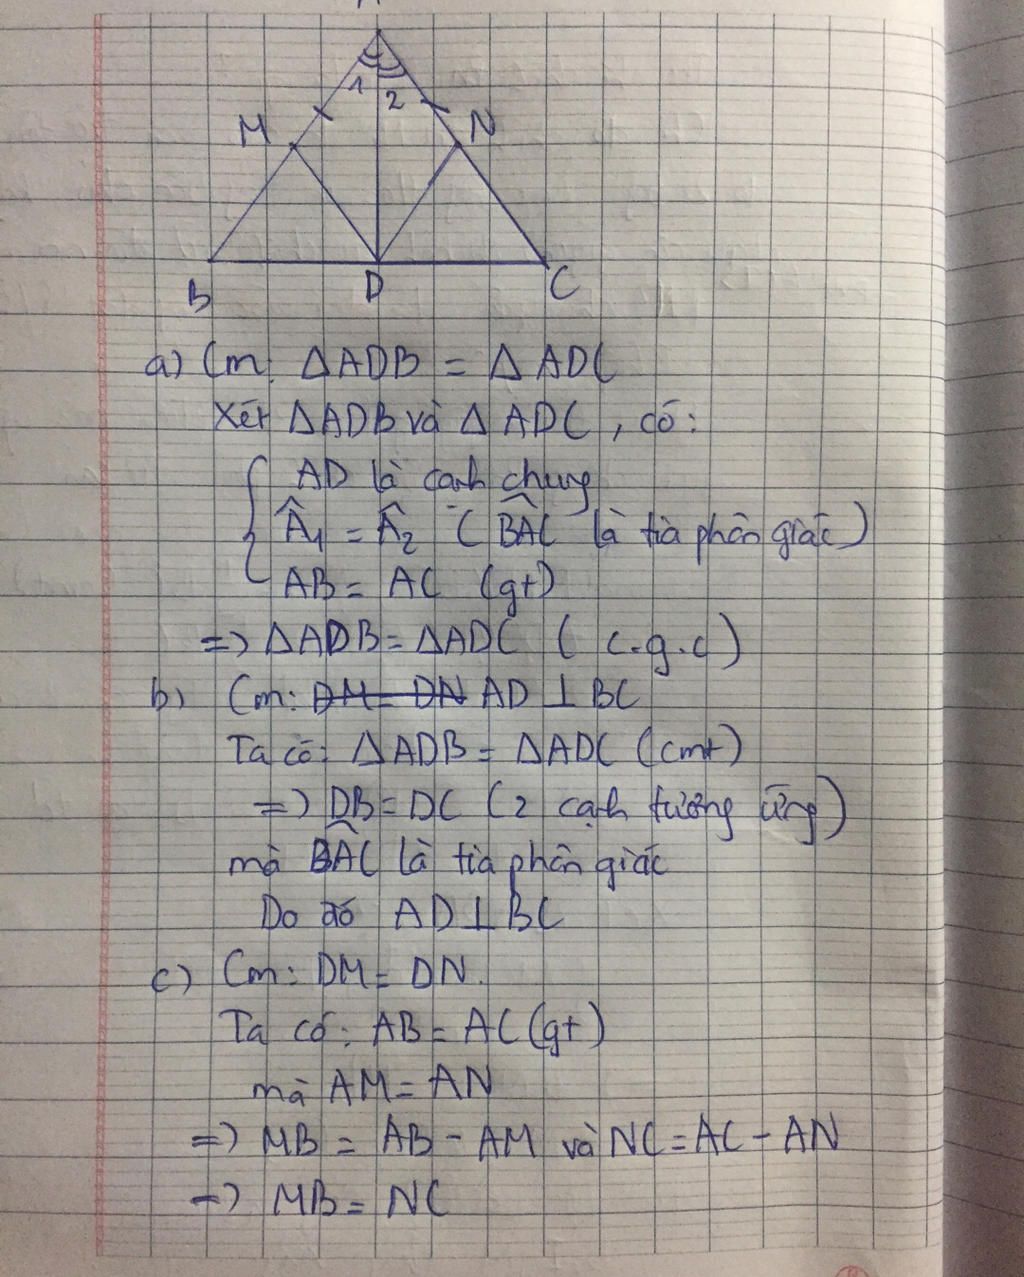 A
1 2
M N
B D C
a) Cm: ΔADB = ΔADC
Xét ΔADB và ΔADC, có:
AD là cạnh chung
Â1 = Â2 (BAC là tia phân giác)
AB = AC (gt)
=> ΔADB = ΔADC (c.g.c)
b) Cm: DM = DN AD ⊥ BC
Ta có: ΔADB = ΔADC (cmt)
=> DB = DC (2 cạnh tương ứng)
mà BAC là tia phân giác
Do đó AD ⊥ BC
c) Cm: DM = DN.
Ta có: AB = AC (gt)
mà AM = AN
=> MB = AB - AM và NC = AC - AN
=> MB = NC